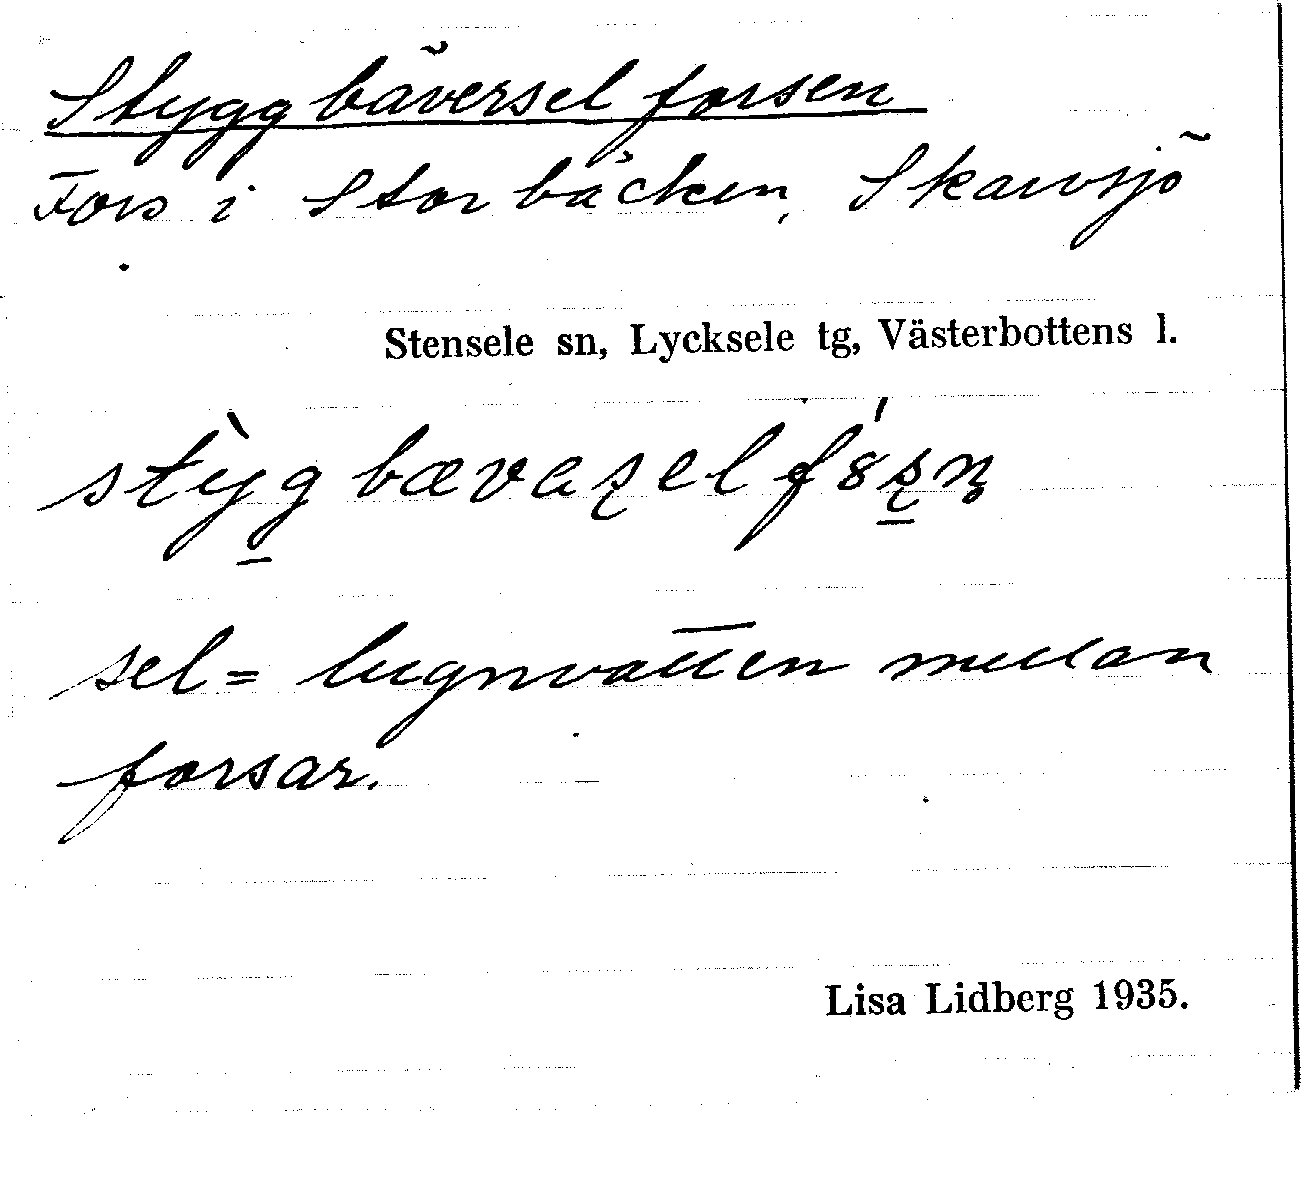 Styggbäverselforsen
Fors i Storbäcken, Skarvsjö
Stensele sn, Lycksele tg, Västerbottens l.
stỳg̱bævaʂelfȣ́ʂ̱ṇ
sel = lugnvatten mellan
forsar.
Lisa Lidberg 1935.